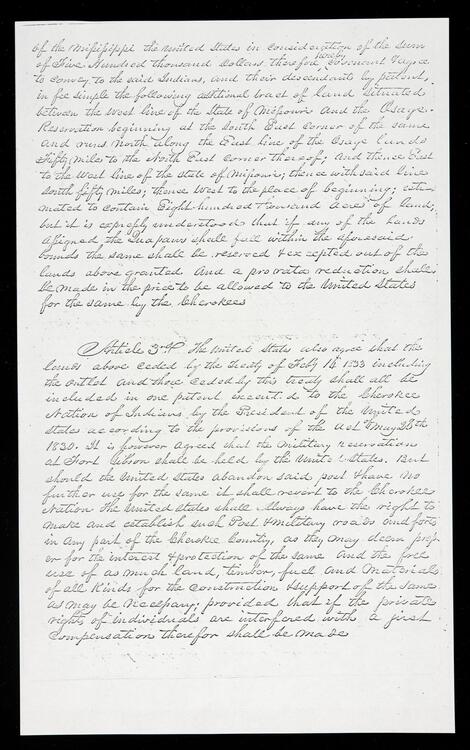 of the Mississippi the United States in consideration of the Sum
of Five Hundred thousand Dollars therefore hereby Covenant & agree
to convey to the said Indians, and their descendants by patent,
in fee simple the following additional tract of land situated
between the west line of the State of Missouri and the Osage
Reservation beginning at the South East corner of the same
and runs North along the East line of the Osage Lands
Fifty miles to the North East Corner thereof; And thence East
to the West line of the State of Missouri; thence with said line
South fifty miles; thence West to the place of beginning; esti
mated to contain Eight hundred thousand acres of land;
but it is expressly understood that if any of the lands
assigned the Quapaws shall fall within the aforesaid
bounds the same shall be reserved & excepted out of the
lands above granted and a pro rata reduction shall
be made in the price to be allowed to the United States
for the same by the Cherokees
Article 3rd The United States also agree that the
lands above ceded by the treaty of Feby 14 1833 including
the outlet and those ceded by this treaty shall all be
included in one patent executed to the Cherokee
Nation of Indians by the President of the United
States according to the provisions of the act of May 28th
1830. It is however agreed that the military reservation
at Fort Gibson shall be held by the United States. But
should the United States abandon said post & have no
further use for the same it shall revert to the Cherokee
Nation The United States shall always have the right to
make and establish such Post & military roads and forts
in any part of the Cherokee Country, as they may deem prop
er for the interest & protection of the same and the free
use of as much land, timber, fuel and materials
of all Kinds for the construction & support of the same
as may be necessary; provided that if the private
rights of individuals are interfered with a just
compensation therefor shall be made